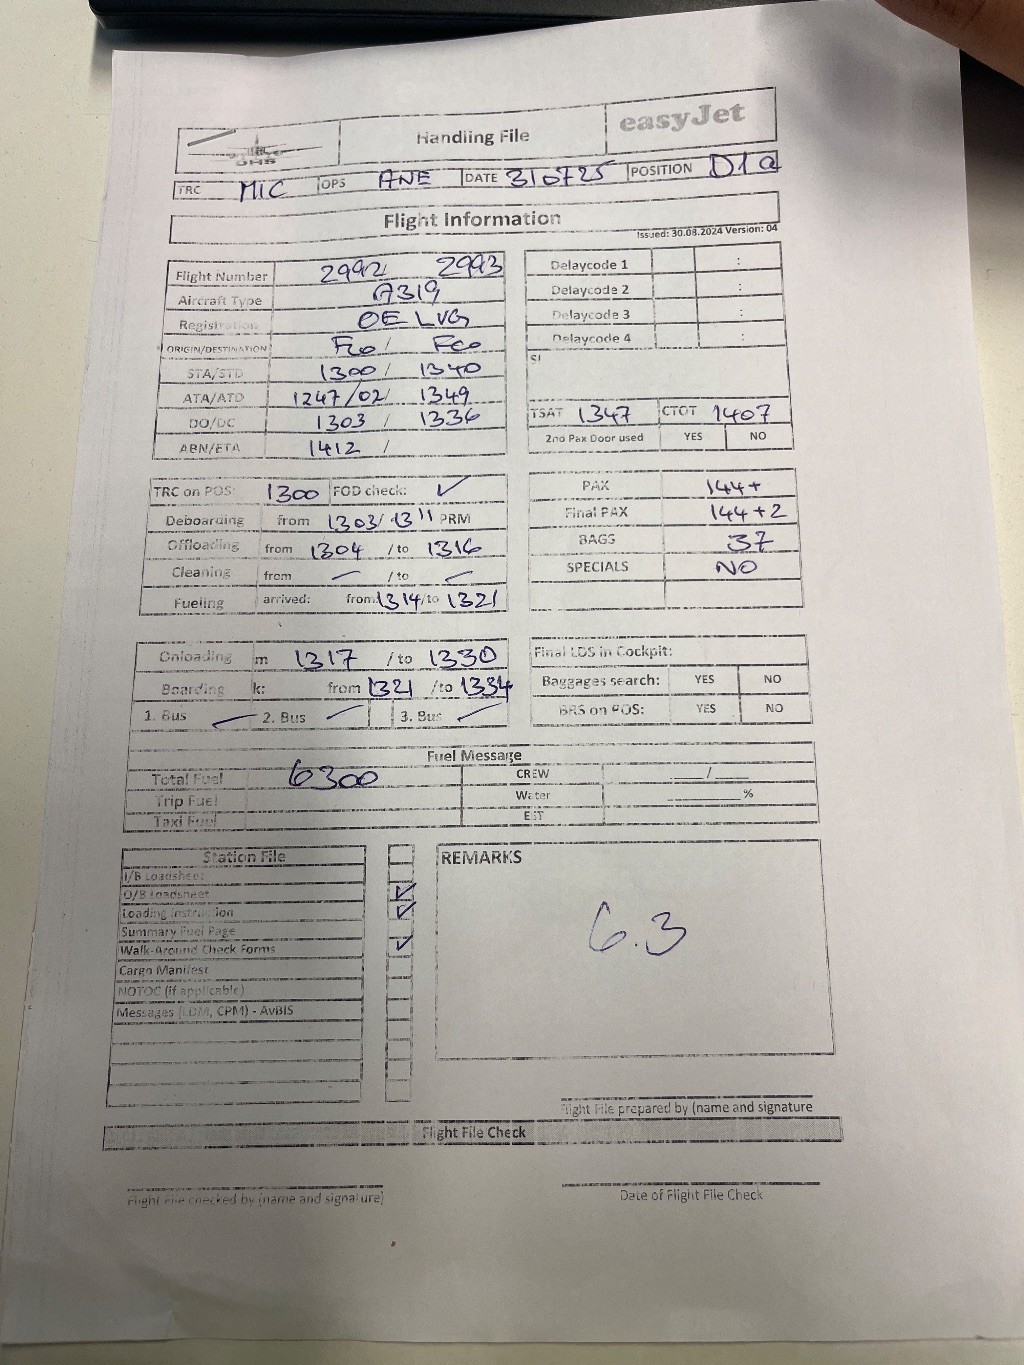 OHS Handling File easyJet
TRC MIC OPS ANE DATE 310725 POSITION D1a
Flight Information
Issued: 30.08.2024 Version: 04
Flight Number 2992/ 2993
Aircraft Type A319
Registration OE LVG
ORIGIN/DESTINATION Fco/ Fco
STA/STD 1300/ 1340
ATA/ATD 1247/02/ 1349
DO/DC 1303 / 1336
ABN/ETA 1412 /
Delaycode 1 :
Delaycode 2 :
Delaycode 3 :
Delaycode 4 :
SI
TSAT 1347 CTOT 1407
2nd Pax Door used YES NO
TRC on POS: 1300 FOD check: ✓
Deboarding from 1303/ 1311 PRM
Offloading from 1304 / to 1316
Cleaning from – / to –
Fueling arrived: from 1314/to 1321
PAX 144+
Final PAX 144+2
BAGS 37
SPECIALS NO
Onloading m 1317 / to 1330
Boarding k: from 1321 /to 1334
1. Bus – 2. Bus – 3. Bus –
Final LDS in Cockpit:
Baggages search: YES NO
BRS on POS: YES NO
Fuel Message
Total Fuel 6300
Trip Fuel
Taxi Fuel
CREW ____/____
Water ________%
EST
Station File
I/B Loadsheet
O/B Loadsheet ✓
Loading Instruction ✓
Summary Fuel Page
Walk-Around Check Forms ✓
Cargo Manifest
NOTOC (if applicable)
Messages (LDM, CPM) - AvBIS
REMARKS
6.3
Flight File prepared by (name and signature
Flight File Check
Flight File checked by (name and signature)
Date of Flight File Check